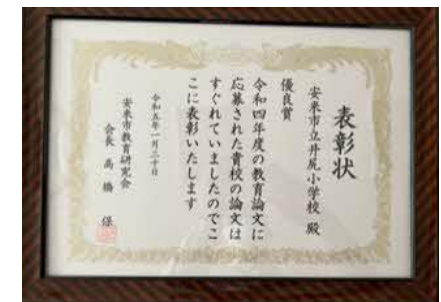 表彰状
安来市立井尻小学校 殿
優良賞
令和四年度の教育論文に
応募された貴校の論文は
すぐれていましたのでこ
こに表彰いたします
令和五年一月三十日
安来市教育研究会
会長 高橋 保